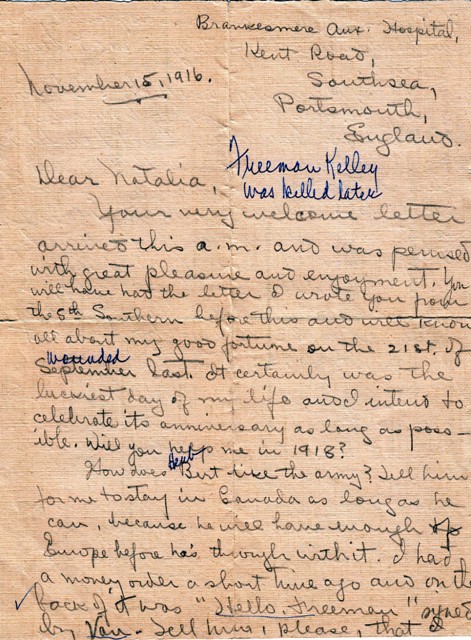 Brankesmere Aux. Hospital,
Kent Road,
November 15, 1916.
Southsea,
Portsmouth,
England.
Freeman Kelley
was killed later
Dear Natalia,
Your very welcome letter
arrived this a.m. and was perused
with great pleasure and enjoyment. You
will have had the letter I wrote you from
the 5th Southern before this and will know
all about my good fortune on the 21st. of
wounded
September last. It certainly was the
luckiest day of my life and I intend to
celebrate its anniversary as long as poss-
ible. Will you help me in 1918?
How does Bert like the army? Tell him
for me to stay in Canada as long as he
can, because he will have enough of
Europe before he's through with it. I had
a money order a short time ago and on the
back of it was "Hello, Freeman" signed
by Van. Tell him, please, that I